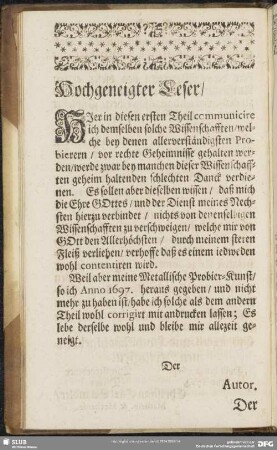 Hochgeneigter Leser/
HJer in diesen ersten Theil communicire
ich demselben solche Wissenschafften/wel-
che bey denen allerverständigsten Pro-
bierern / vor rechte Geheimnisse gehalten wer-
den/werde zwar bey manchen dieser Wissenschaff-
ten geheim haltenden schlechten Danck verdie-
nen. Es sollen aber dieselben wissen / daß mich
die Ehre GOttes / und der Dienst meines Nech-
sten hierzu verbindet / nichts von denenselbigen
Wissenschafften zu verschweigen / welche mir von
GOtt den Allerhöchsten / durch meinem steten
Fleiß verliehen / verhoffe daß es einem iedweden
wohl contentiren wird.
Weil aber meine Metallische Probier-Kunst/
so ich Anno 1697. heraus gegeben / und nicht
mehr zu haben ist/habe ich solche als dem andern
Theil wohl corrigirt mit andrucken lassen; Es
lebe derselbe wohl und bleibe mir allezeit ge-
neigt.
Der
Autor.
Der
SLUB
DFG